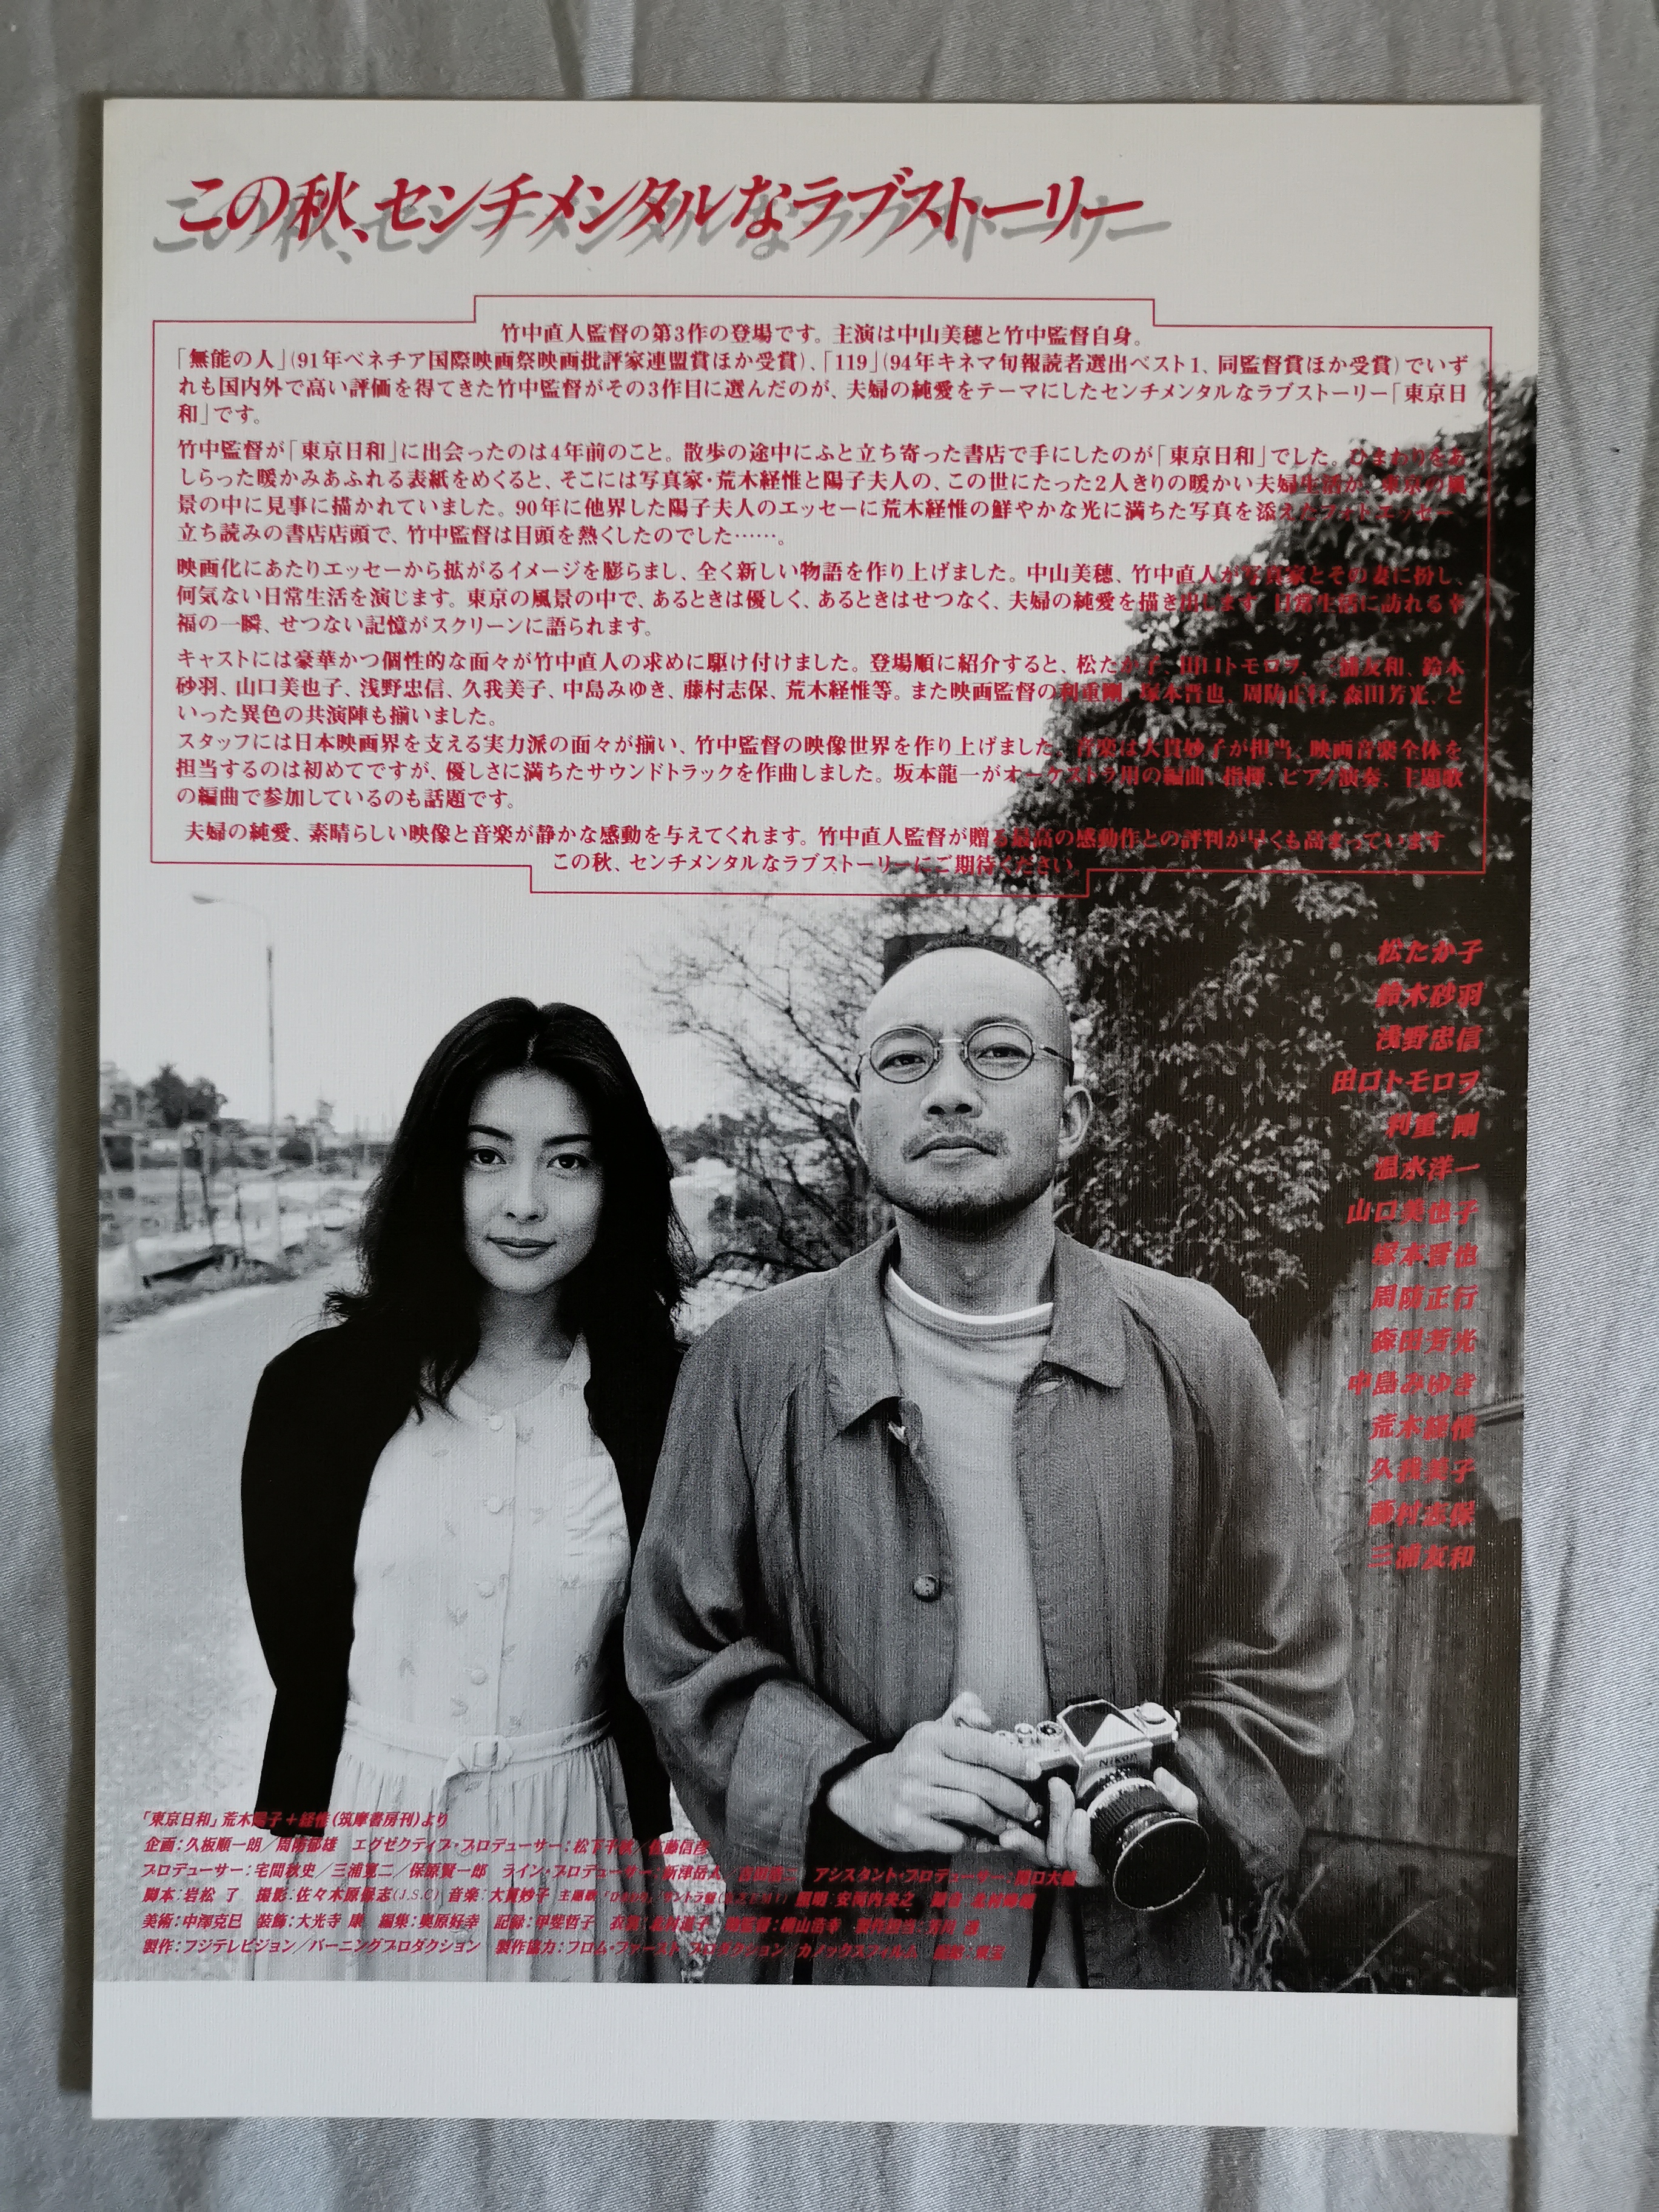 この秋、センチメンタルなラブストーリー
竹中直人監督の第3作の登場です。主演は中山美穂と竹中監督自身。
「無能の人」(91年ベネチア国際映画祭映画批評家連盟賞ほか受賞)、「119」(94年キネマ旬報読者選出ベスト1、同監督賞ほか受賞)でいず
れも国内外で高い評価を得てきた竹中監督がその3作目に選んだのが、夫婦の純愛をテーマにしたセンチメンタルなラブストーリー「東京日
和」です。
竹中監督が「東京日和」に出会ったのは4年前のこと。散歩の途中にふと立ち寄った書店で手にしたのが「東京日和」でした。ひまわりをあ
しらった暖かみあふれる表紙をめくると、そこには写真家・荒木経惟と陽子夫人の、この世にたった2人きりの暖かい夫婦生活が、東京の風
景の中に見事に描かれていました。90年に他界した陽子夫人のエッセーに荒木経惟の鮮やかな光に満ちた写真を添えたフォトエッセー
立ち読みの書店店頭で、竹中監督は目頭を熱くしたのでした……。
映画化にあたりエッセーから拡がるイメージを膨らまし、全く新しい物語を作り上げました。中山美穂、竹中直人が写真家とその妻に扮し、
何気ない日常生活を演じます。東京の風景の中で、あるときは優しく、あるときはせつなく、夫婦の純愛を描き出します。日常生活に訪れる幸
福の一瞬、せつない記憶がスクリーンに語られます。
キャストには豪華かつ個性的な面々が竹中直人の求めに駆け付けました。登場順に紹介すると、松たか子、田口トモロヲ、三浦友和、鈴木
砂羽、山口美也子、浅野忠信、久我美子、中島みゆき、藤村志保、荒木経惟等。また映画監督の利重剛、塚本晋也、周防正行、森田芳光、と
いった異色の共演陣も揃いました。
スタッフには日本映画界を支える実力派の面々が揃い、竹中監督の映像世界を作り上げました。音楽は大貫妙子が担当。映画音楽全体を
担当するのは初めてですが、優しさに満ちたサウンドトラックを作曲しました。坂本龍一がオーケストラ用の編曲、指揮、ピアノ演奏、主題歌
の編曲で参加しているのも話題です。
夫婦の純愛、素晴らしい映像と音楽が静かな感動を与えてくれます。竹中直人監督が贈る最高の感動作との評判が早くも高まっています
この秋、センチメンタルなラブストーリーにご期待ください。
松たか子
鈴木砂羽
浅野忠信
田口トモロヲ
利重 剛
温水洋一
山口美也子
塚本晋也
周防正行
森田芳光
中島みゆき
荒木経惟
久我美子
藤村志保
三浦友和
Nikon
「東京日和」荒木陽子＋経惟(筑摩書房刊)より
企画：久板順一朗／周防郁雄 エグゼクティブ・プロデューサー：松下千秋／佐藤信彦
プロデューサー：宅間秋史／三浦寛二／保原賢一郎 ライン・プロデューサー：新津岳人 アシスタント・プロデューサー：関口大輔
脚本：岩松 了 撮影：佐々木原保志(J.S.C) 音楽：大貫妙子 主題歌 サントラ盤 照明：安河内央之
美術：中澤克巳 装飾：大光寺 康 編集：奥原好幸 記録：甲斐哲子 助監督：横山浩幸 製作担当：芳川 透
製作：フジテレビジョン／バーニングプロダクション 製作協力：フロム・ファースト プロダクション／カノックスフィルム 配給：東宝